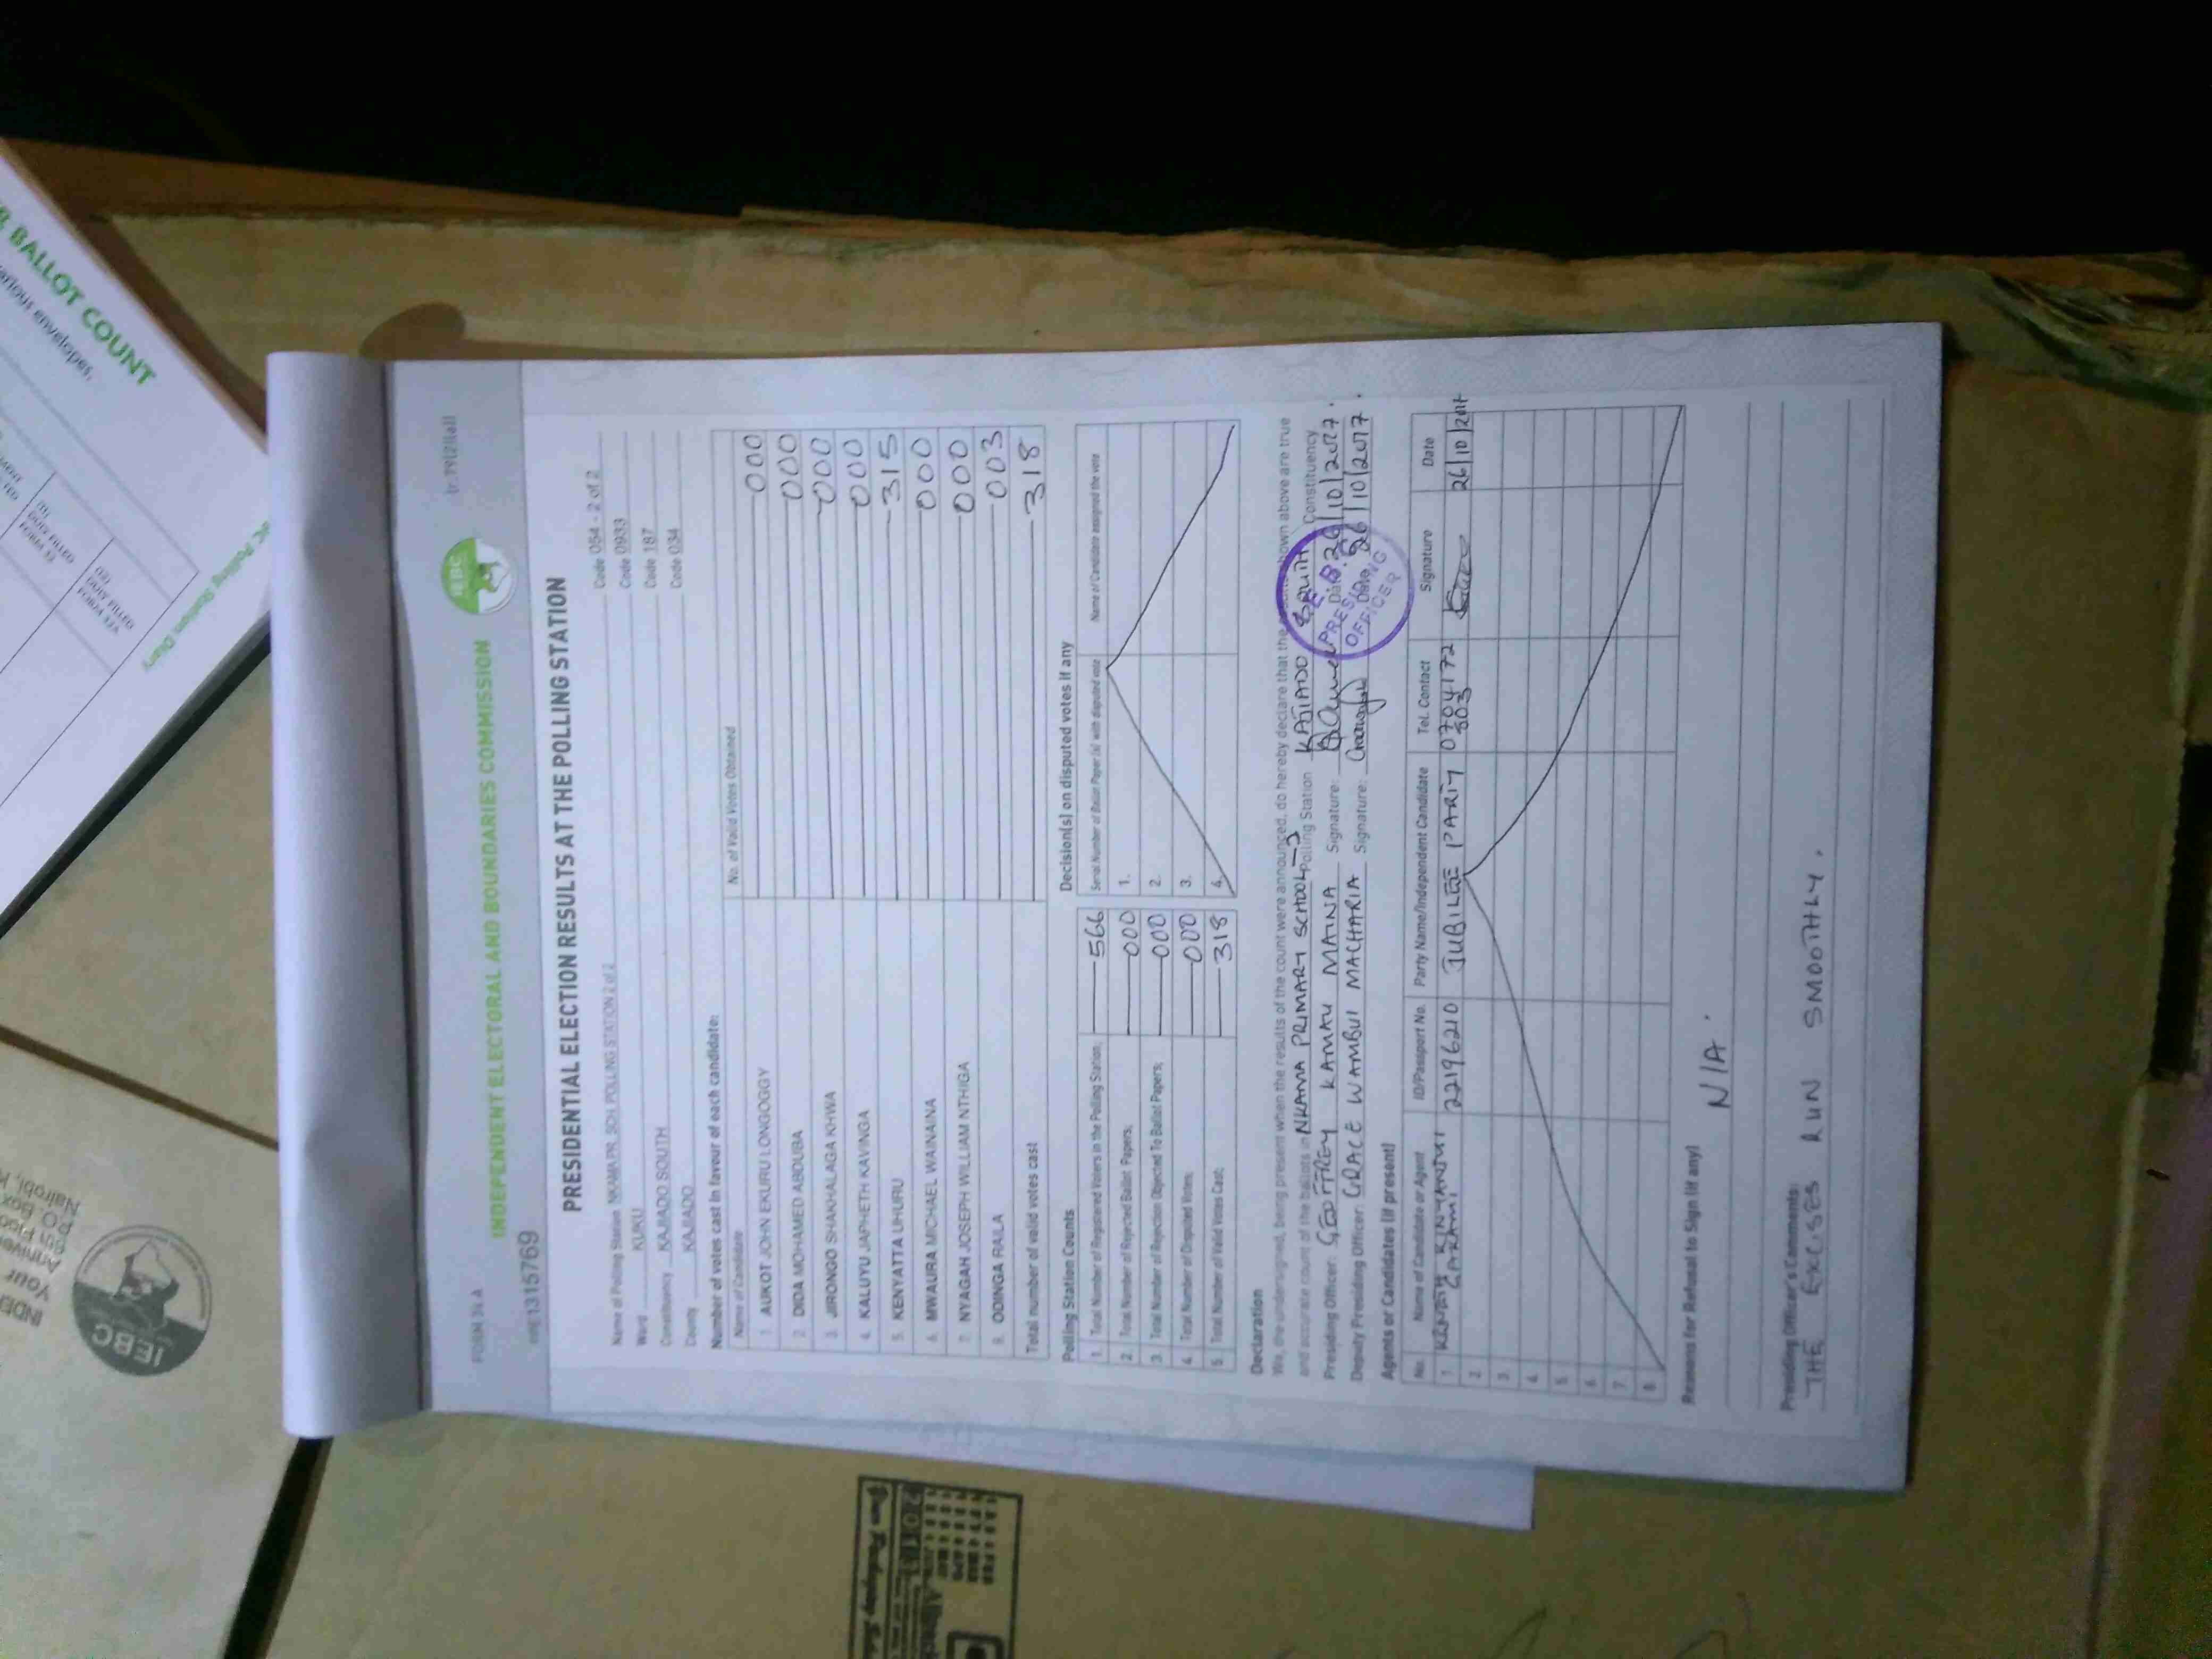 FORM 34A
tr. 79(2)(a)
INDEPENDENT ELECTORAL AND BOUNDARIES COMMISSION
IEBC
1315769
PRESIDENTIAL ELECTION RESULTS AT THE POLLING STATION
Name of Polling Station NKAMA PR. SCH POLLING STATION 2 of 2 Code 054 - 2 of 2
Ward KUKU Code 0933
Constituency KAJIADO SOUTH Code 187
County KAJIADO Code 034
Number of votes cast in favour of each candidate:
Name of Candidate No. of Valid Votes Obtained
1 AUKOT JOHN EKURU LONGOGGY 000
2 DIDA MOHAMED ABDUBA 000
3 JIRONGO SHAKHALAGA KHWA 000
4 KALUYU JAPHETH KAVINGA 000
5 KENYATTA UHURU 315
6 MWAURA MICHAEL WAINAINA 000
7 NYAGAH JOSEPH WILLIAM NTHIGA 000
8 ODINGA RAILA 003
Total number of valid votes cast 318
Polling Station Counts
1. Total Number of Registered Voters in the Polling Station; 566
2. Total Number of Rejected Ballot Papers; 000
3. Total Number of Rejection Objected To Ballot Papers; 000
4. Total Number of Disputed Votes; 000
5. Total Number of Valid Votes Cast; 318
Decision(s) on disputed votes if any
Serial Number of Ballot Paper (s) with disputed vote Name of Candidate assigned the vote
1.
2.
3.
4.
Declaration
We, the undersigned, being present when the results of the count were announced, do hereby declare that the shown above are true
and accurate count of the ballots in NKAMA PRIMARY SCHOOL Polling Station KAJIADO SOUTH Constituency
Presiding Officer: GEOFFREY KAMAU MAINA Signature: Date 26/10/2017.
Deputy Presiding Officer: GRACE WAMBUI MACHARIA Signature: Date 26/10/2017.
PRESIDING
OFFICER
Agents or Candidates (if present)
No. Name of Candidate or Agent ID/Passport No. Party Name/Independent Candidate Tel. Contact Signature Date
1 KINYANJUI 22196210 JUBILEE PARTY 0704172 26/10/2017
503
2.
3.
4.
5.
6.
7.
8.
Reasons for Refusal to Sign (if any)
N/A.
Presiding Officer's Comments:
THE EXCISES RUN SMOOTHLY.
BALLOT COUNT
envelopes.
Polling Station Diary
IEBC
P.O. Box
Nairobi,
Your